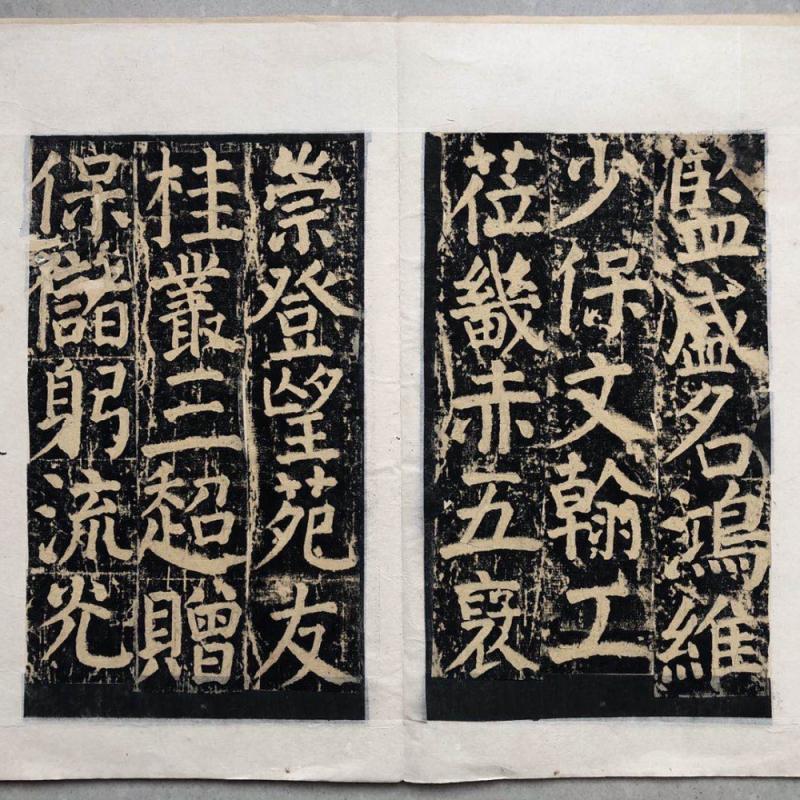 監盛名鴻維
少保文翰工
莅畿赤五襃
崇登望苑友
桂叢三超贈
保儲躬流光